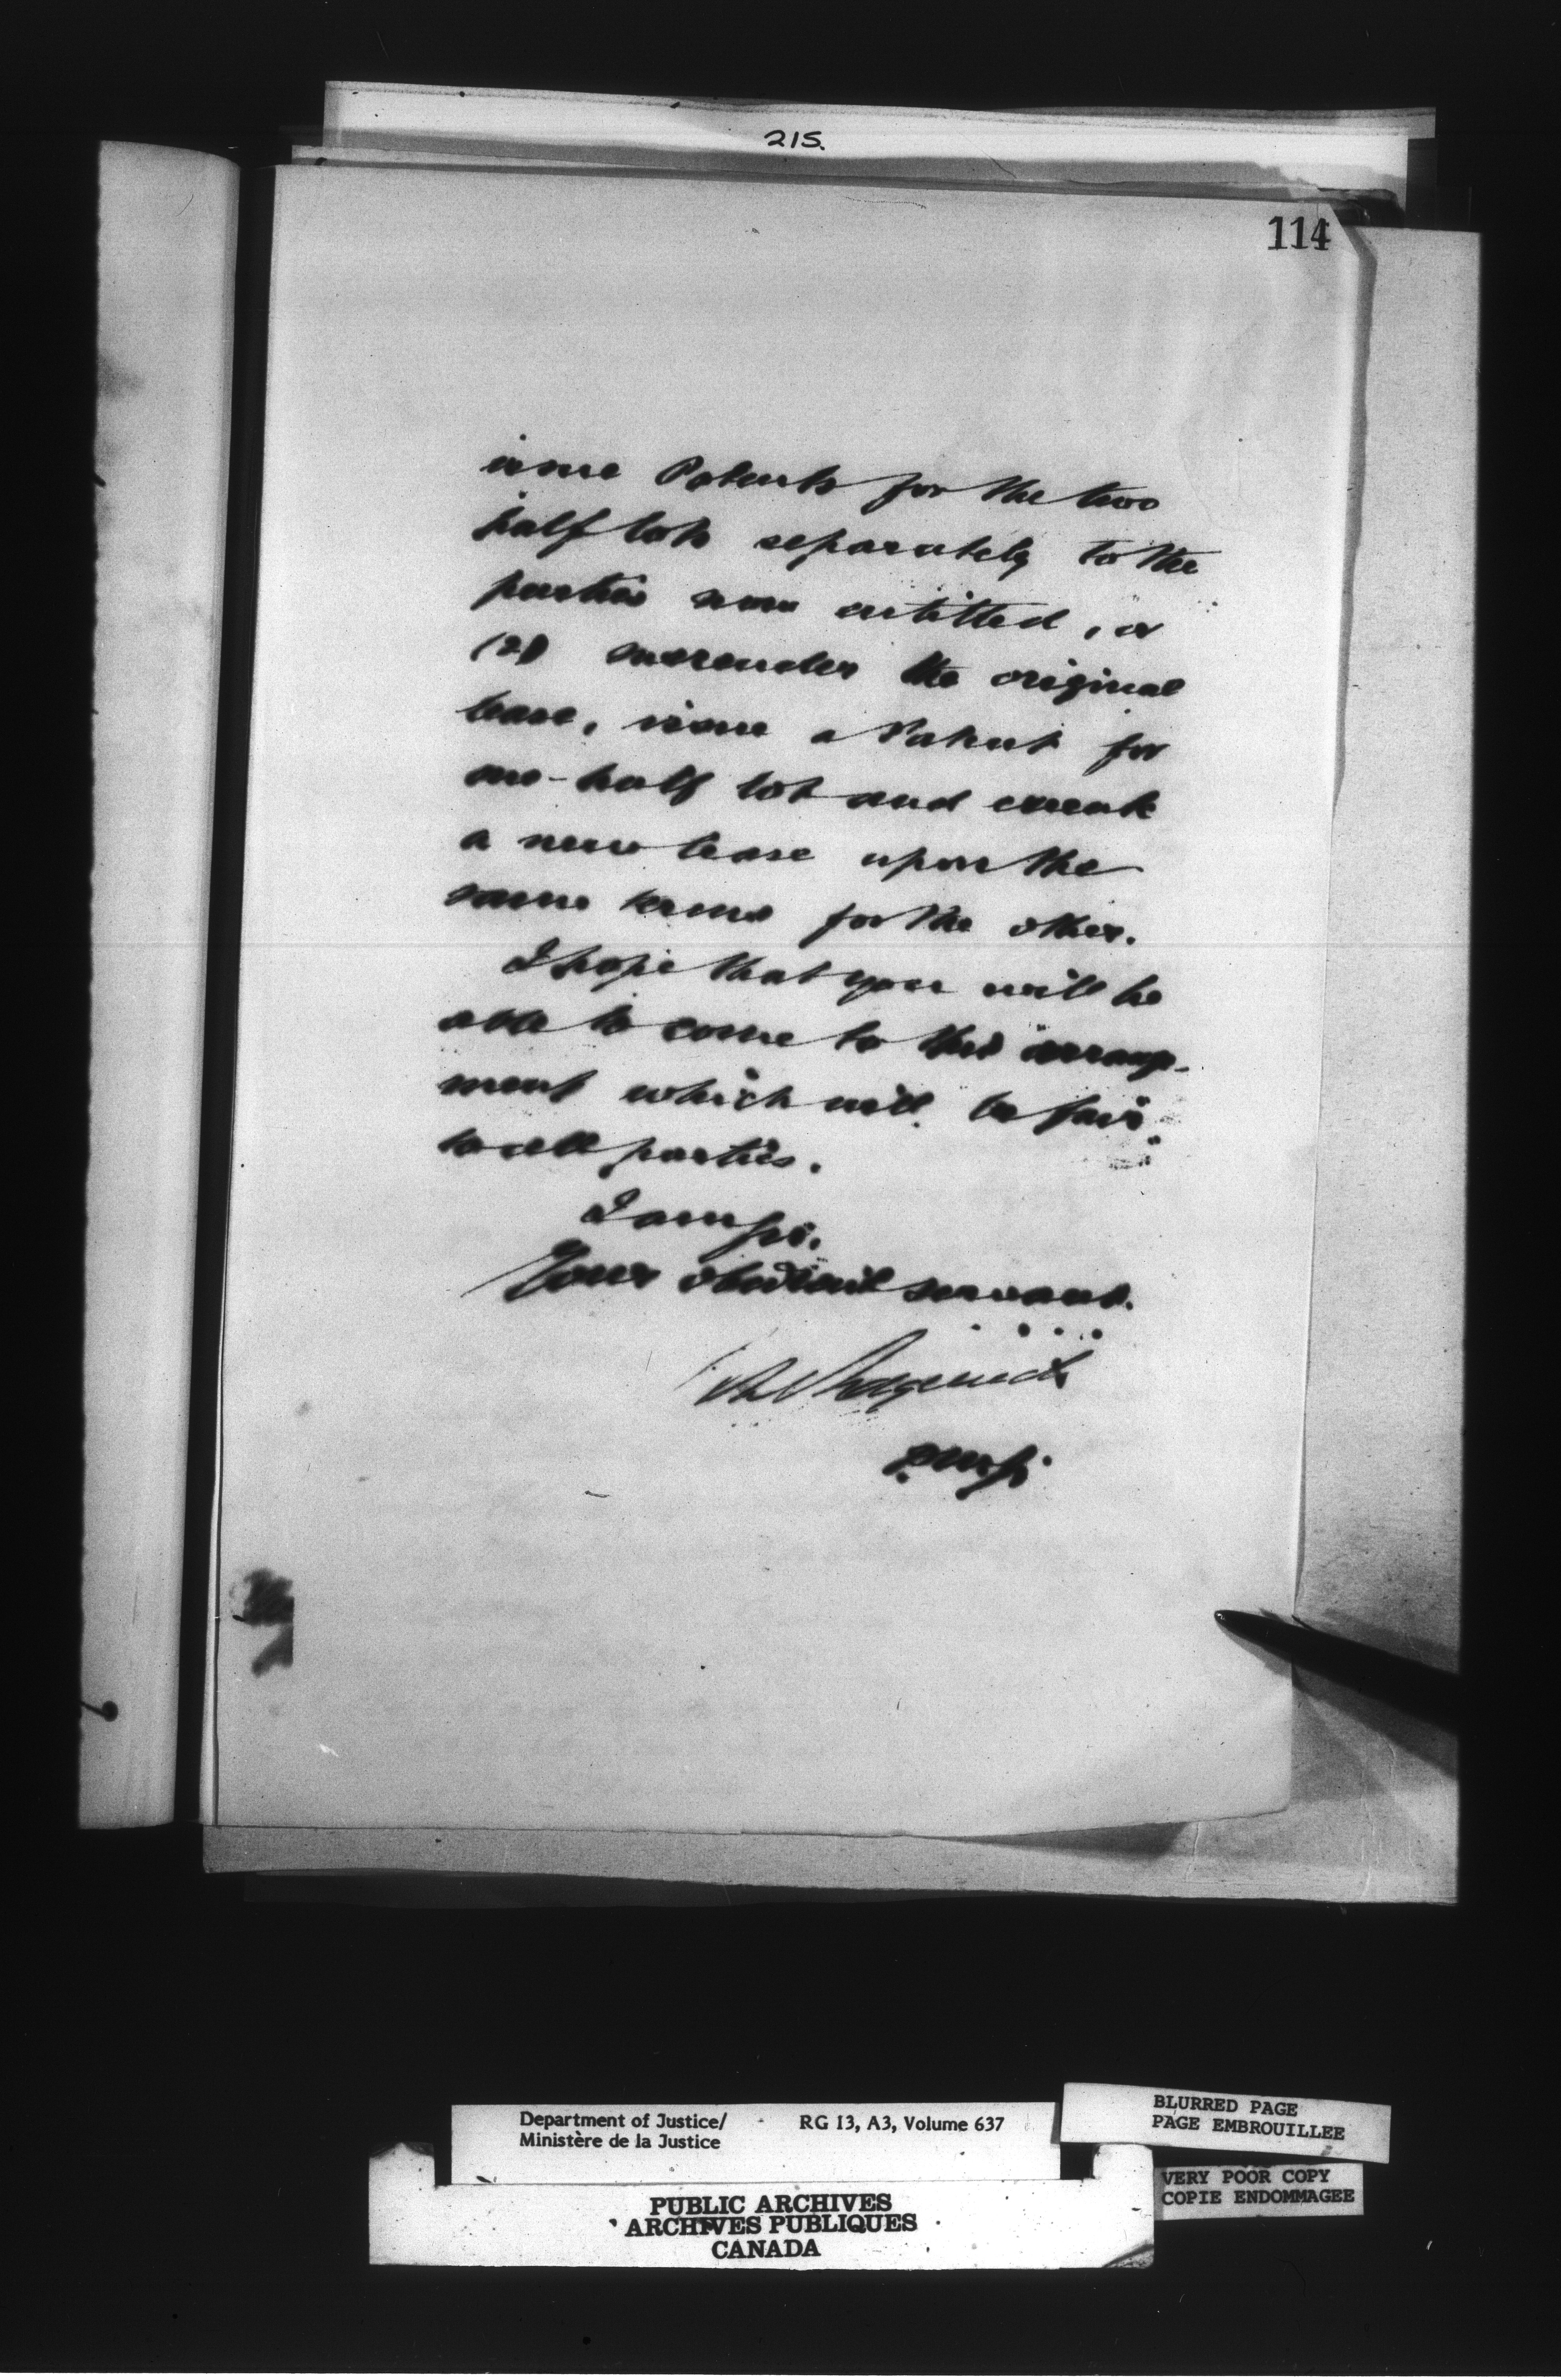 215.
114
issue Patents for the two
half lots separately to the
parties now entitled, or
(2) surrender the original
lease, issue a Patent for
one-half lot and execute
a new lease upon the
same terms for the other.
I hope that you will be
able to come to this arrange-
ment which will be fair
to all parties.
I am Sir,
Your obedient servant.
Sedgewick
D.M.J.
Department of Justice/
Ministère de la Justice
RG 13, A3, Volume 637
BLURRED PAGE
PAGE EMBROUILLEE
VERY POOR COPY
COPIE ENDOMMAGEE
PUBLIC ARCHIVES
ARCHIVES PUBLIQUES
CANADA